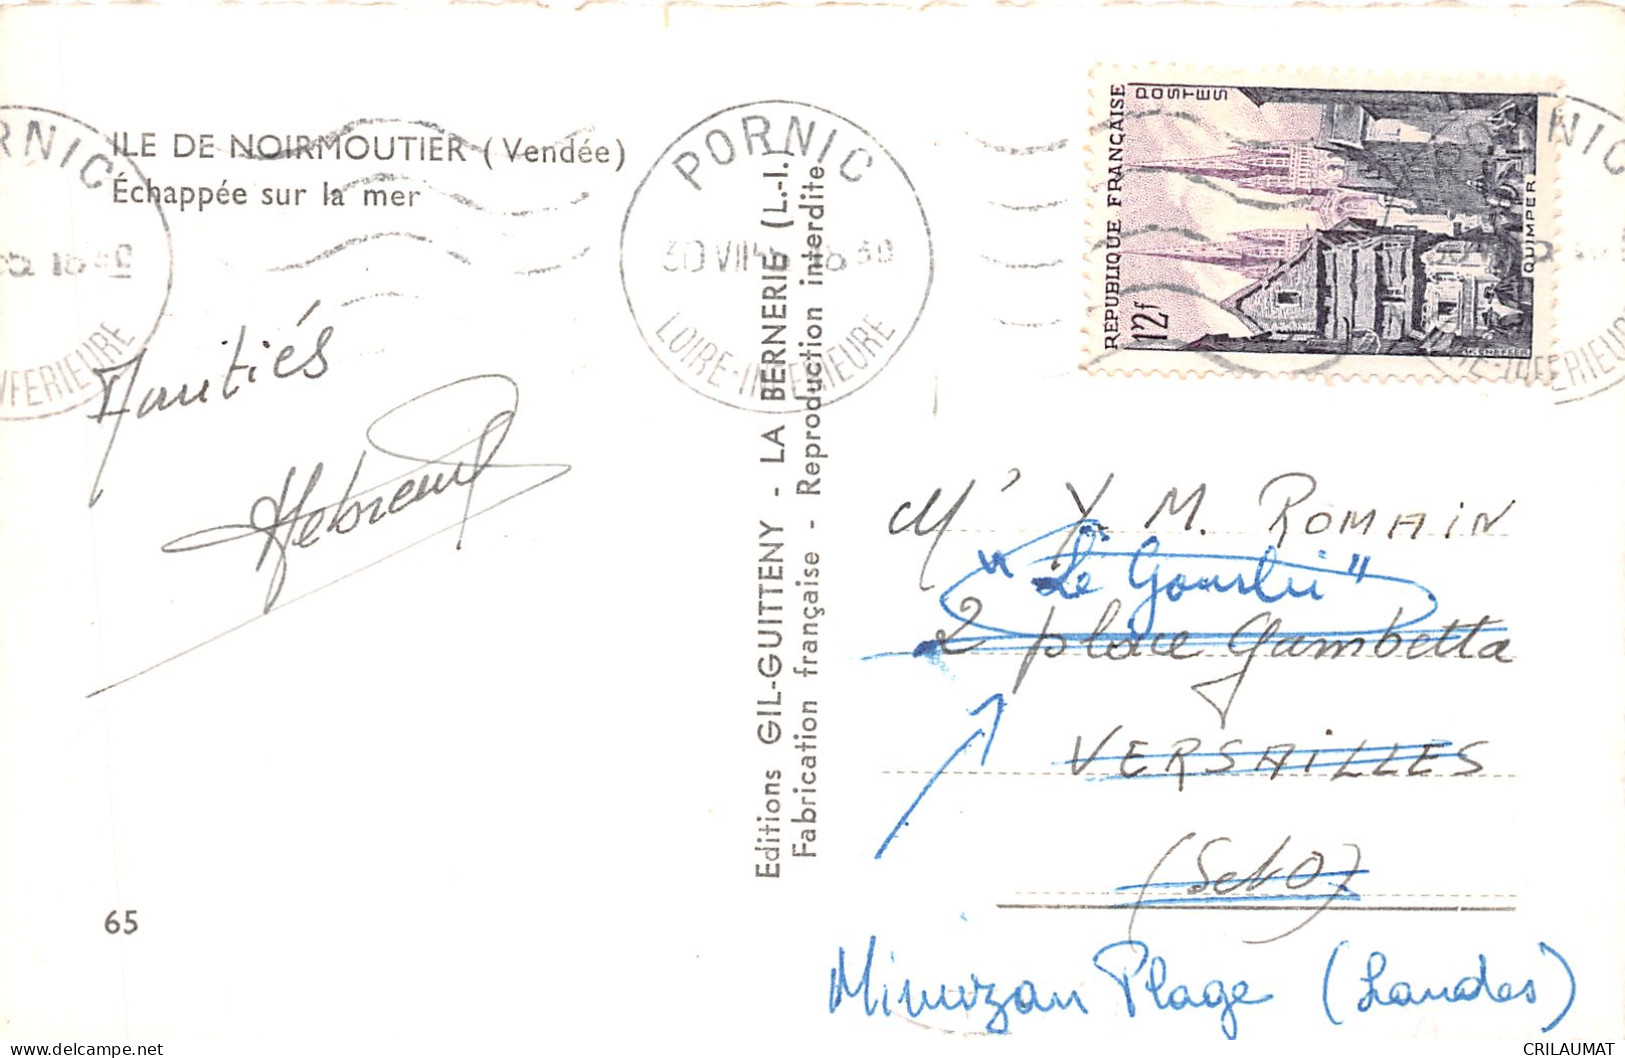 ILE DE NOIRMOUTIER (Vendée)
Échappée sur la mer
Amitiés
65
Editions GIL-GUITTENY - LA BERNERIE (L.-I.
Fabrication française - Reproduction interdite
PORNIC
30 VII
18 30
LOIRE-INFERIEURE
RNIC
18 30
NFERIEURE
REPUBLIQUE FRANÇAISE
POSTES
12f
QUIMPER
NIC
FERIEUR
Mr Y. M. ROMAIN
2 place Gambetta
VERSAILLES
(S et O)
Mimizan Plage (Landes)
CRILAUMAT